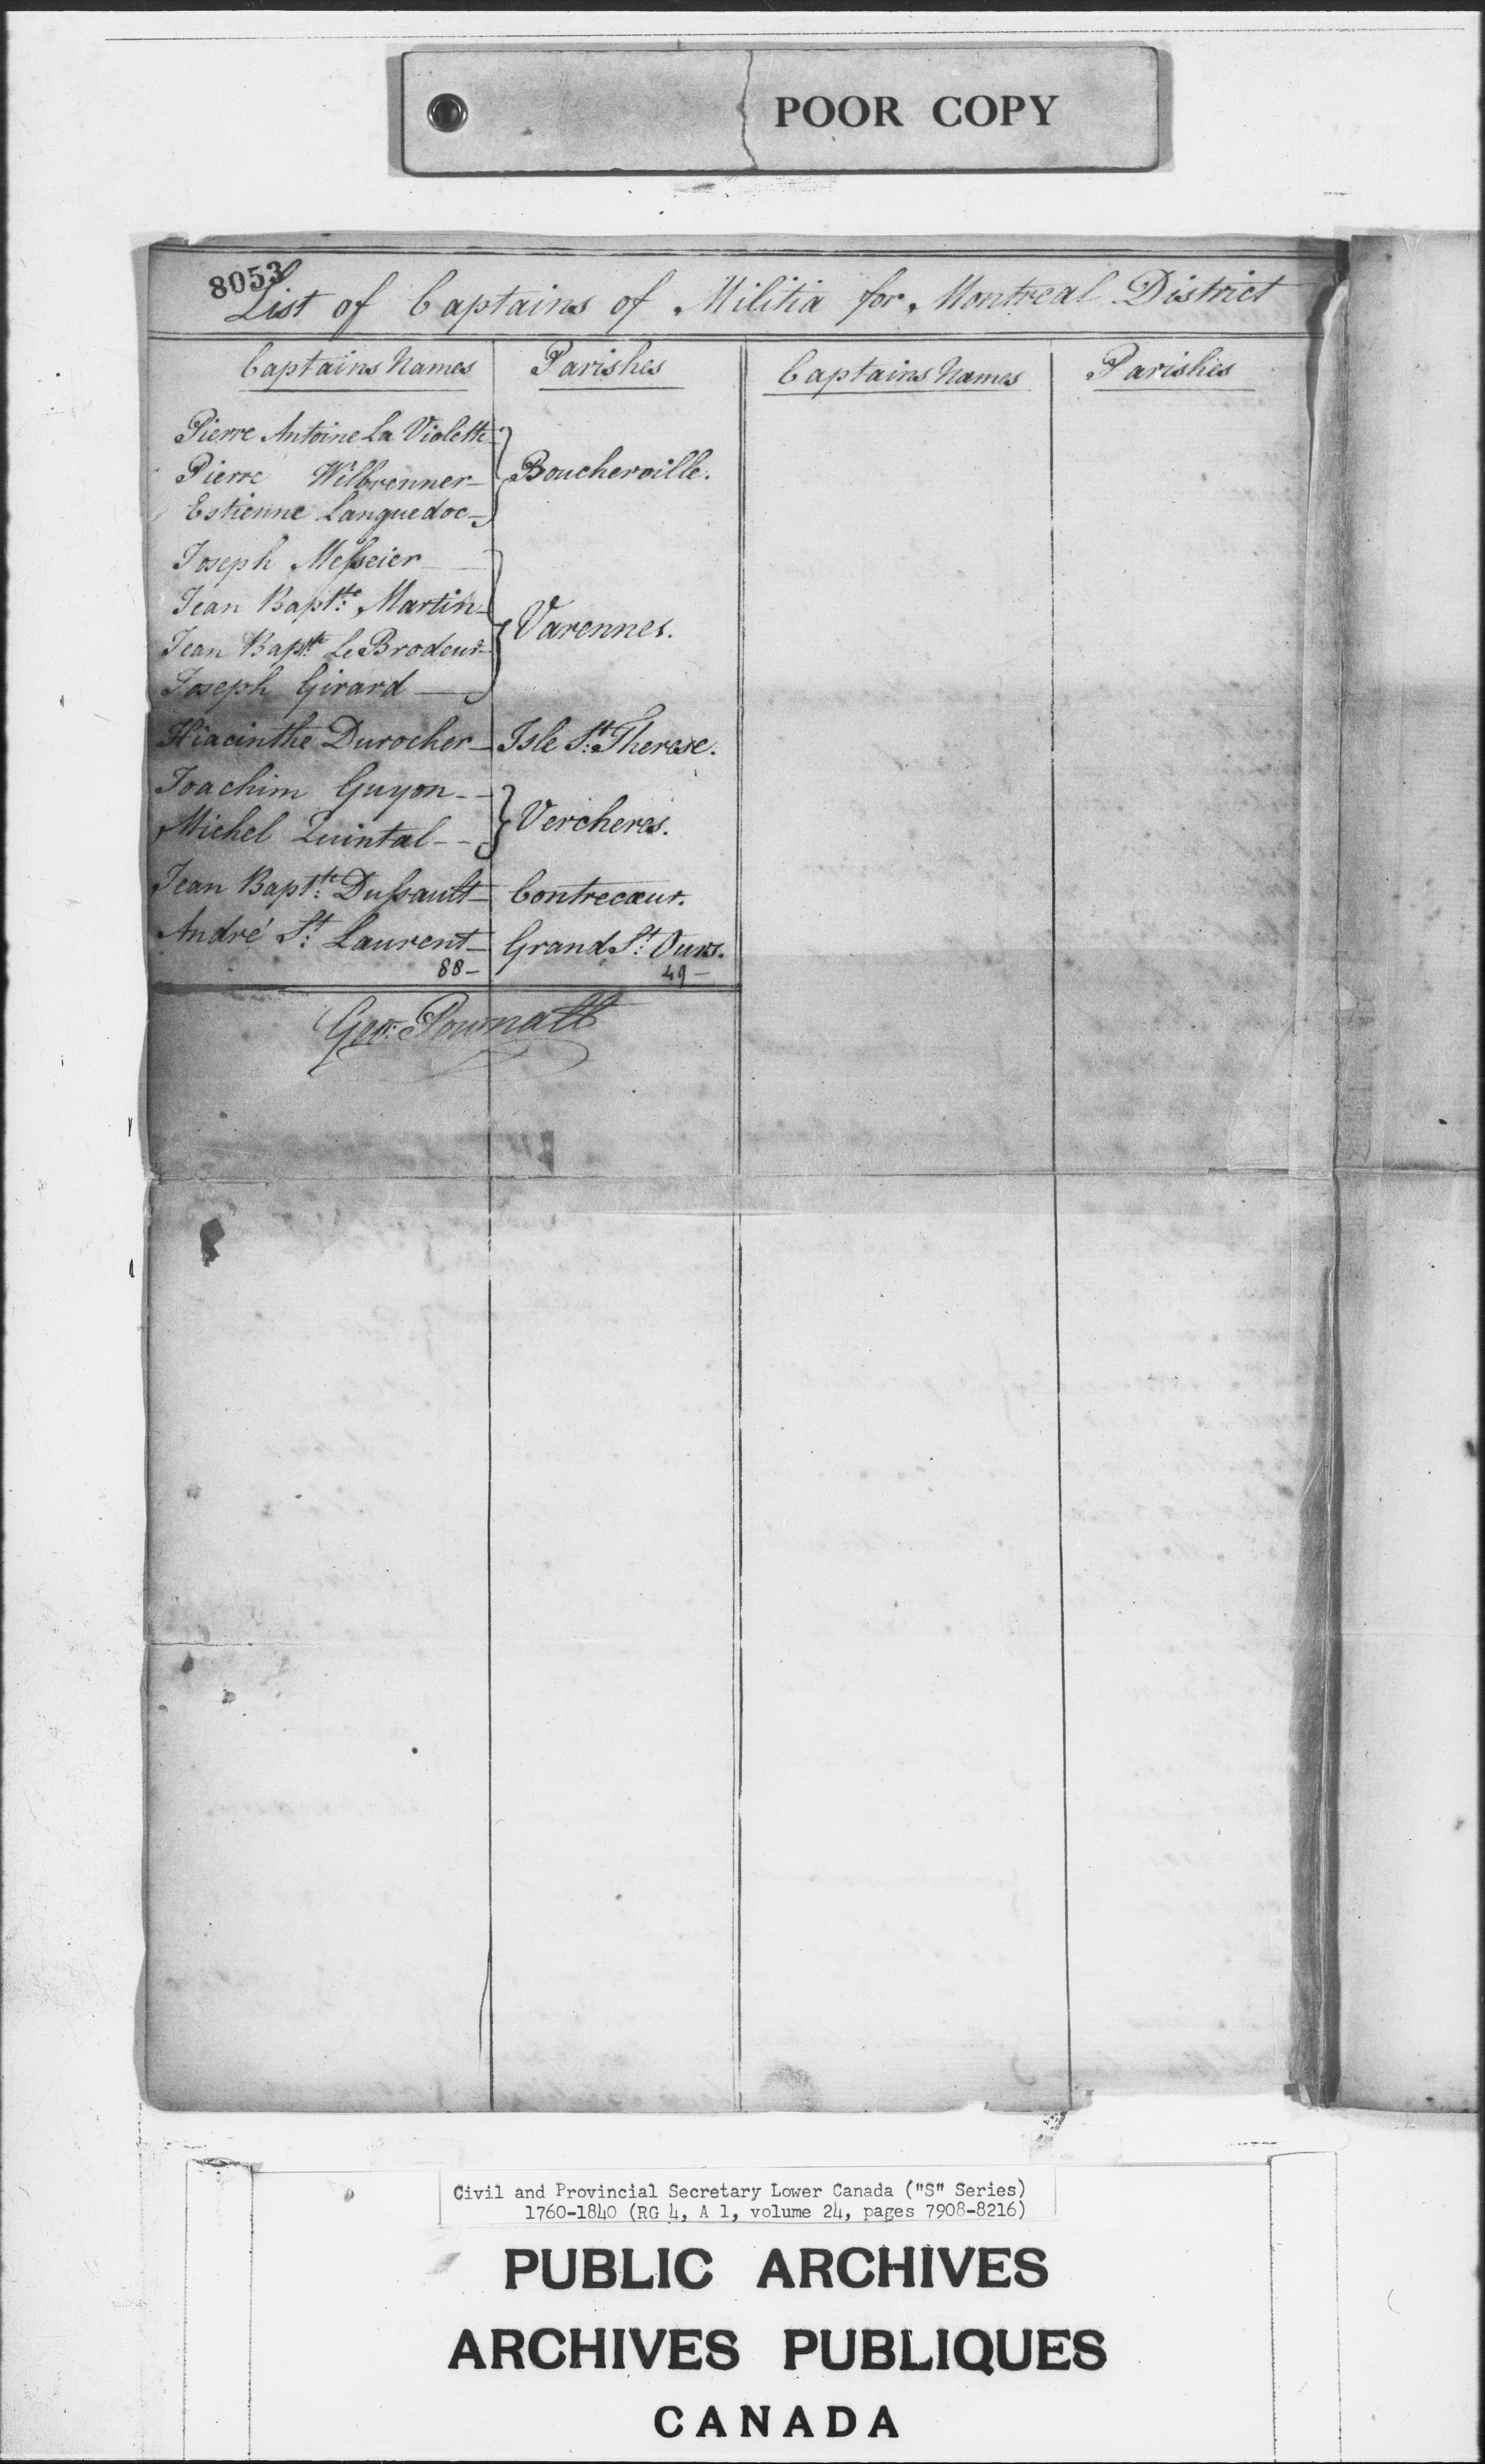 POOR COPY
8053
List of Captains of Militia for Montreal District
Captains Names Parishes Captains Names Parishes
Pierre Antoine La Violette
Pierre Wilbrenner Boucherville.
Estienne Languedoc
Joseph Messeier
Jean Baptte Martin
Varennes.
Jean Baptte Le Brodeur
Joseph Girard
Hiacinthe Durocher Isle St Therese.
Joachim Guyon
Vercheres.
Michel Quintal
Jean Baptte Dussault Contrecœur.
André St Laurent Grand St Ours.
88 49
Geo: Pownall
Civil and Provincial Secretary Lower Canada ("S" Series)
1760-1840 (RG 4, A 1, volume 24, pages 7908-8216)
PUBLIC ARCHIVES
ARCHIVES PUBLIQUES
CANADA